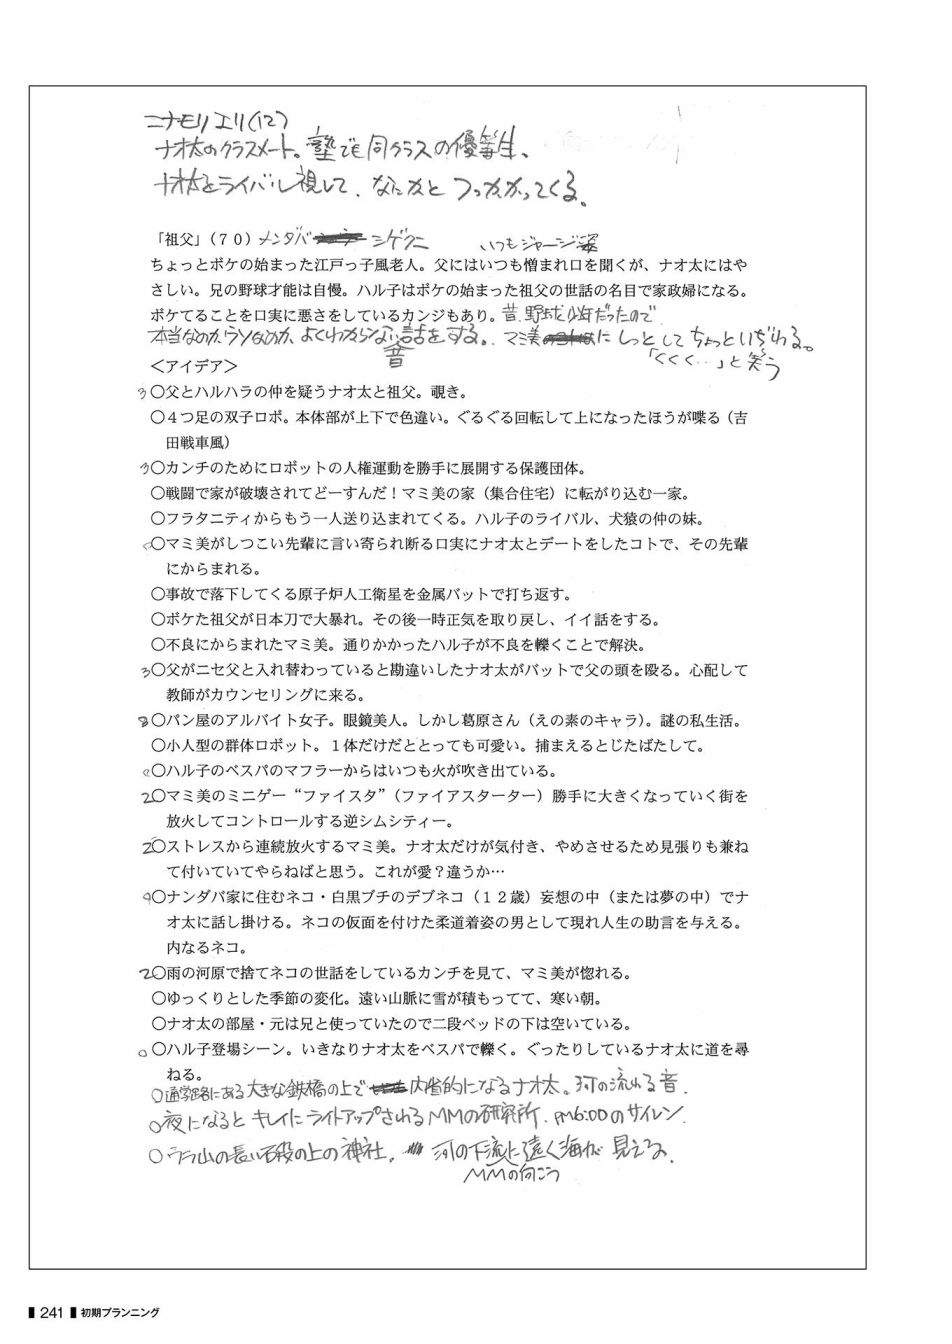 ニナモリ エリ(12)
ナオ太のクラスメート。塾でも同クラスの優等生、
ナオ太をライバル視して、なにかと つっかかってくる。
「祖父」(７０) シゲクニ いつもジャージ姿
ちょっとボケの始まった江戸っ子風老人。父にはいつも憎まれ口を聞くが、ナオ太にはや
さしい。兄の野球才能は自慢。ハル子はボケの始まった祖父の世話の名目で家政婦になる。
ボケてることを口実に悪さをしているカンジもあり。昔、野球少年だったので
本当なのか、ウソなのか、よくわからない昔話をする。マミ美にしっとしてちょっといぢわる。
「くくく…」と笑う
＜アイデア＞
3○父とハルハラの仲を疑うナオ太と祖父。覗き。
○４つ足の双子ロボ。本体部が上下で色違い。ぐるぐる回転して上になったほうが喋る（吉
田戦車風）
3○カンチのためにロボットの人権運動を勝手に展開する保護団体。
○戦闘で家が破壊されてどーすんだ！マミ美の家（集合住宅）に転がり込む一家。
○フラタニティからもう一人送り込まれてくる。ハル子のライバル、犬猿の仲の妹。
○マミ美がしつこい先輩に言い寄られ断る口実にナオ太とデートをしたコトで、その先輩
にからまれる。
○事故で落下してくる原子炉人工衛星を金属バットで打ち返す。
○ボケた祖父が日本刀で大暴れ。その後一時正気を取り戻し、イイ話をする。
○不良にからまれたマミ美。通りかかったハル子が不良を轢くことで解決。
3○父がニセ父と入れ替わっていると勘違いしたナオ太がバットで父の頭を殴る。心配して
教師がカウンセリングに来る。
○パン屋のアルバイト女子。眼鏡美人。しかし葛原さん（えの素のキャラ）。謎の私生活。
○小人型の群体ロボット。１体だけだととっても可愛い。捕まえるとじたばたして。
○ハル子のベスパのマフラーからはいつも火が吹き出ている。
2○マミ美のミニゲー“ファイスタ”（ファイアスターター）勝手に大きくなっていく街を
放火してコントロールする逆シムシティー。
2○ストレスから連続放火するマミ美。ナオ太だけが気付き、やめさせるため見張りも兼ね
て付いていてやらねばと思う。これが愛？違うか…
○ナンダバ家に住むネコ・白黒ブチのデブネコ（１２歳）妄想の中（または夢の中）でナ
オ太に話し掛ける。ネコの仮面を付けた柔道着姿の男として現れ人生の助言を与える。
内なるネコ。
2○雨の河原で捨てネコの世話をしているカンチを見て、マミ美が惚れる。
○ゆっくりとした季節の変化。遠い山脈に雪が積もってて、寒い朝。
○ナオ太の部屋・元は兄と使っていたので二段ベッドの下は空いている。
○ハル子登場シーン。いきなりナオ太をベスパで轢く。ぐったりしているナオ太に道を尋
ねる。
○通学路にある大きな鉄橋の上で内省的になるナオ太。河の流れる音.
○夜になるとキレイにライトアップされるMMの研究所. PM6:00のサイレン.
○ウラ山の長い石段の上の神社。河の下流に遠く海が見える.
MMの向こう
241 初期プランニング